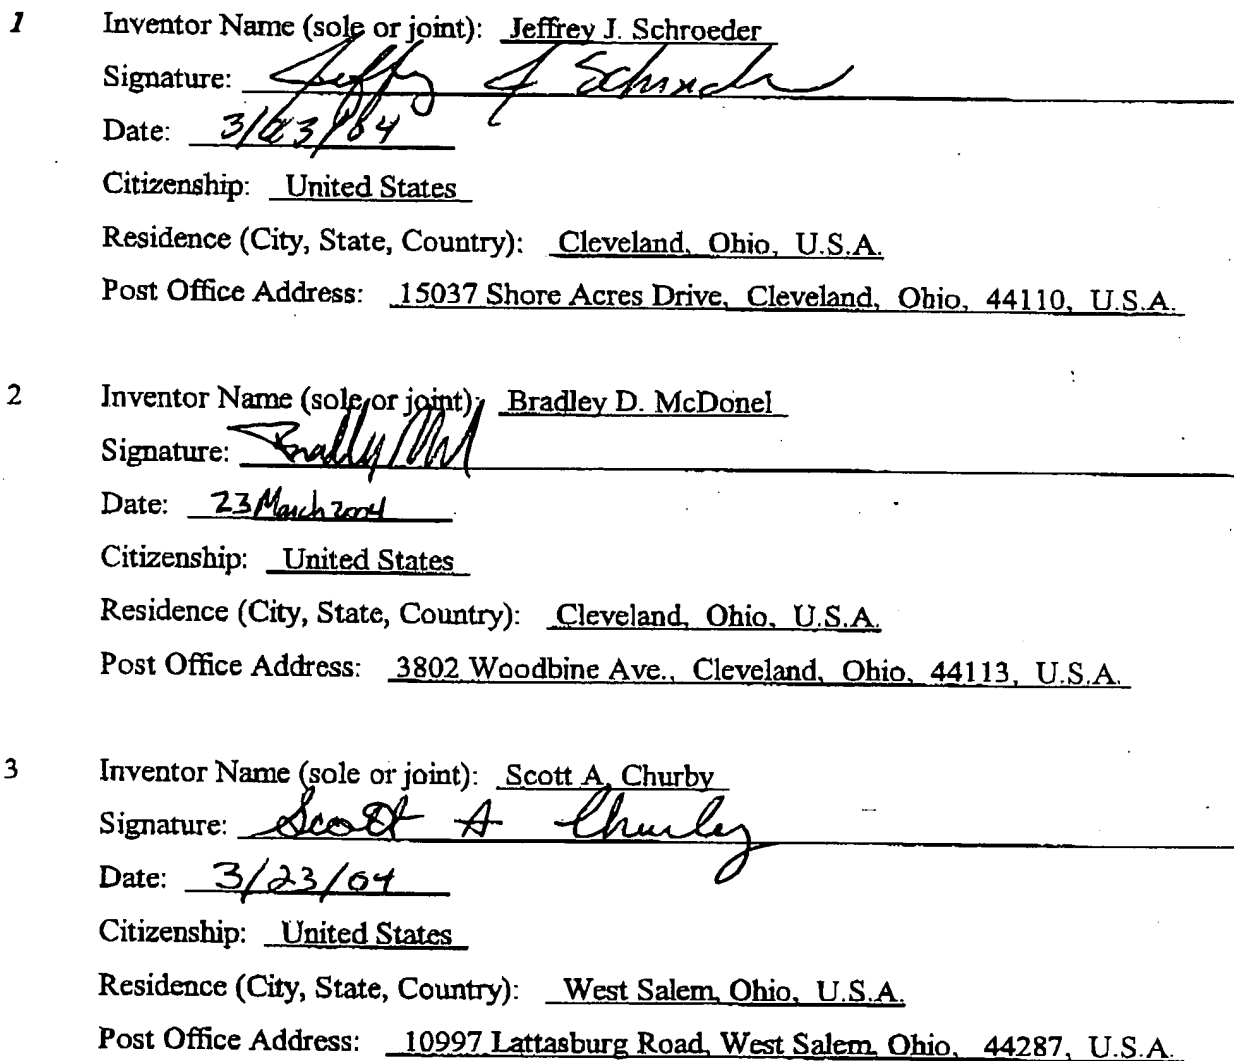 1 Inventor Name (sole or joint): Jeffrey J. Schroeder
Signature: Jeffrey J Schroeder
Date: 3/23/04
Citizenship: United States
Residence (City, State, Country): Cleveland, Ohio, U.S.A.
Post Office Address: 15037 Shore Acres Drive, Cleveland, Ohio, 44110, U.S.A.
2 Inventor Name (sole or joint): Bradley D. McDonel
Signature:
Date: 23 March 2004
Citizenship: United States
Residence (City, State, Country): Cleveland, Ohio, U.S.A.
Post Office Address: 3802 Woodbine Ave., Cleveland, Ohio, 44113, U.S.A.
3 Inventor Name (sole or joint): Scott A. Churby
Signature: Scott A Churby
Date: 3/23/04
Citizenship: United States
Residence (City, State, Country): West Salem, Ohio, U.S.A.
Post Office Address: 10997 Lattasburg Road, West Salem, Ohio, 44287, U.S.A.